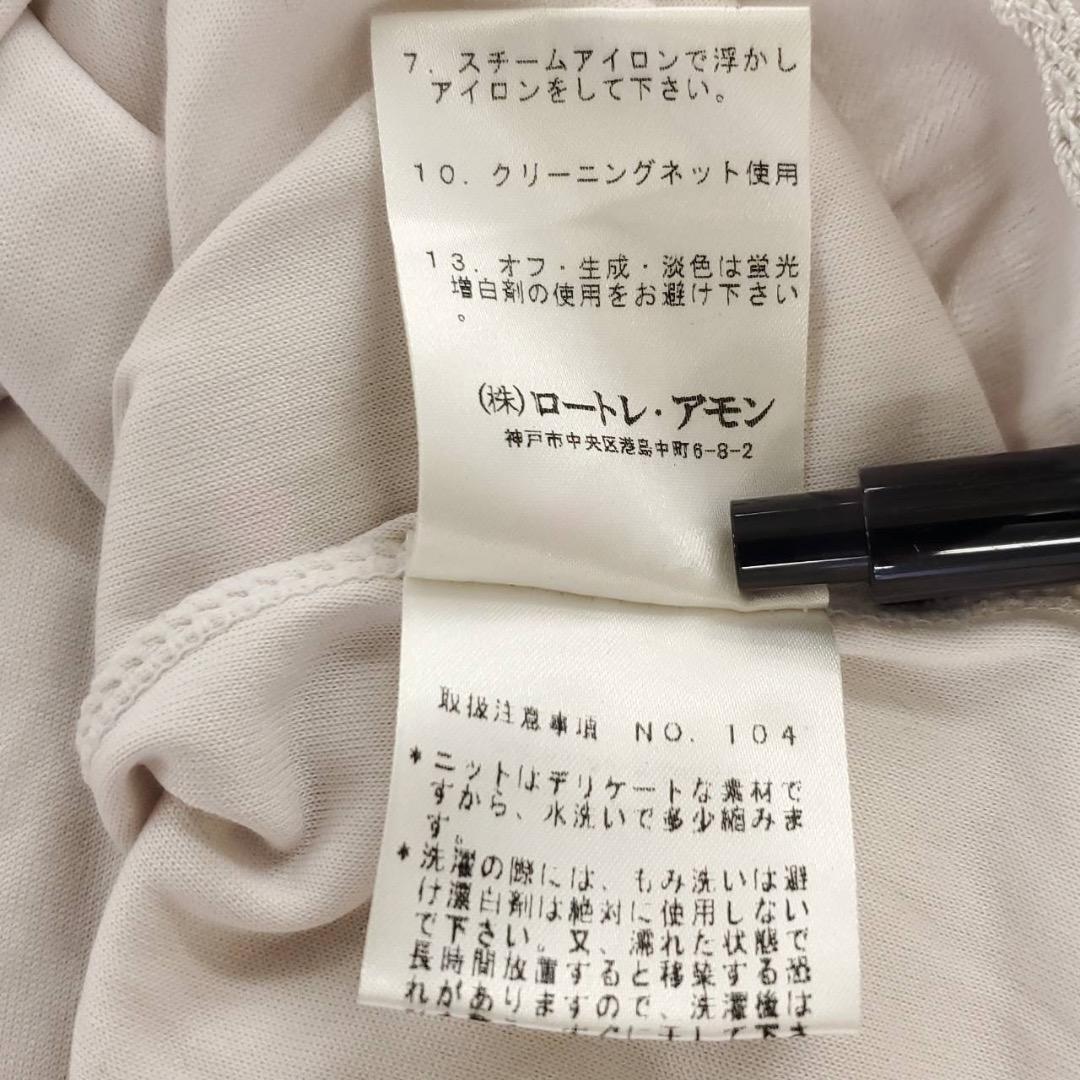 7. スチームアイロンで浮かし
アイロンをして下さい。
10. クリーニングネット使用
13. オフ・生成・淡色は蛍光
増白剤の使用をお避け下さい
。
(株)ロートレ・アモン
神戸市中央区港島中町6-8-2
取扱注意事項 NO. 104
*ニットはデリケートな素材で
すから、水洗いで多少縮みま
す。
*洗濯の際には、もみ洗いは避
け漂白剤は絶対に使用しない
で下さい。又、濡れた状態で
長時間放置すると移染する恐
れがありますので、洗濯後は
すぐに干して下さ